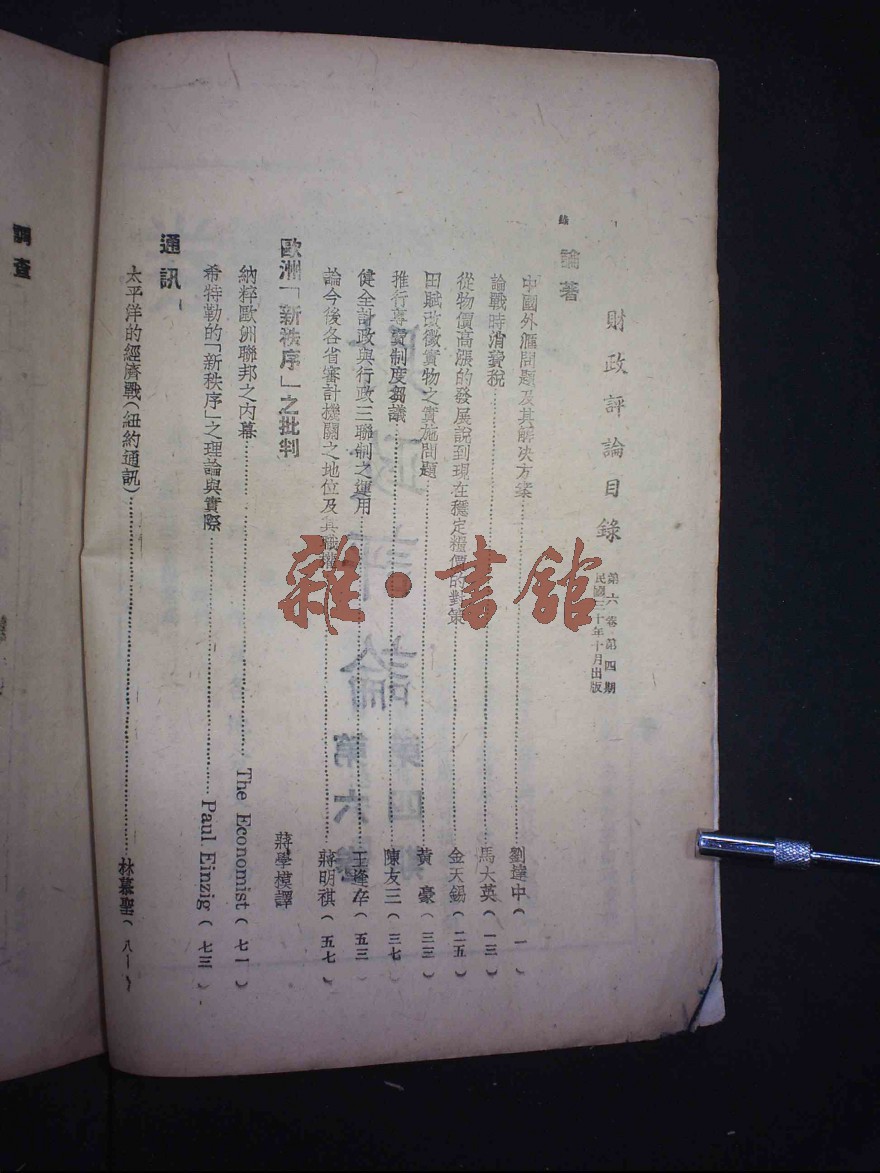 財政評論目錄
第六卷第四期
民國三十年十月出版
論著
中國外滙問題及其解决方案 劉㨗中(一)
論戰時消費稅 馬大英(一三)
從物價高漲的發展說到現在穩定糧價的對策 金天錫(二五)
田賦改徵實物之實施問題 黃豪(三三)
推行專賣制度芻議 陳友三(三七)
健全計政與行政三聯制之運用 王逢辛(五三)
論今後各省審計機關之地位及其職權 蔣明祺(五七)
歐洲「新秩序」之批判 蔣學模譯
納粹歐洲聯邦之內幕 The Economist(七一)
希特勒的「新秩序」之理論與實際 Paul Einzig(七三)
通訊
太平洋的經濟戰(紐約通訊) 林慕聖(八一)
調查
雜·書館